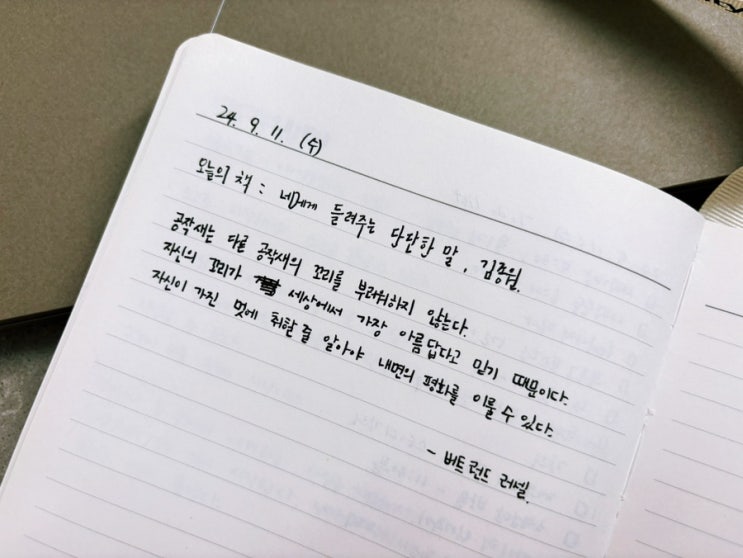 24. 9. 11. (수)
오늘의 책 : 네에게 들려주는 단단한 말, 김종원.
공작새는 다른 공작새의 꼬리를 부러워하지 않는다.
자신의 꼬리가 세상에서 가장 아름답다고 믿기 때문이다.
자신이 가진 멋에 취할 줄 알아야 내면의 평화를 이룰 수 있다.
- 버트런드 러셀.